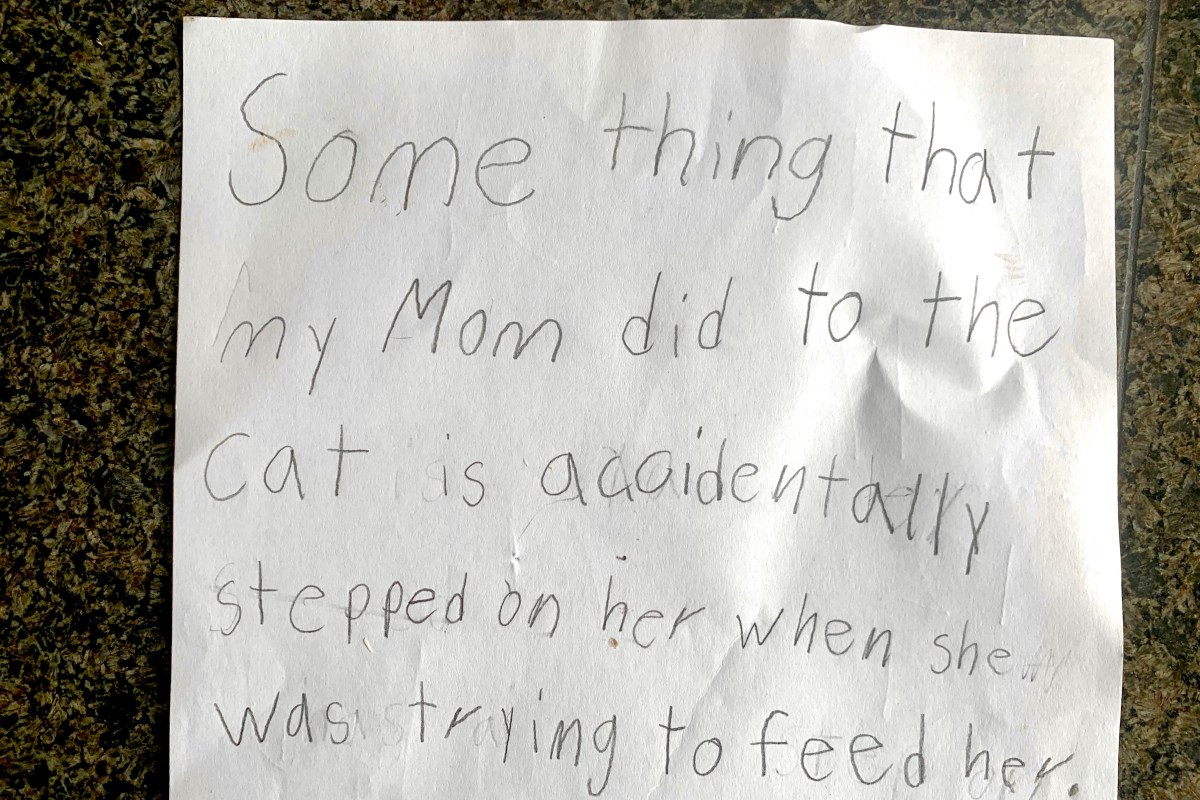 Some thing that
my Mom did to the
cat is accidentally
stepped on her when she
was trying to feed her.